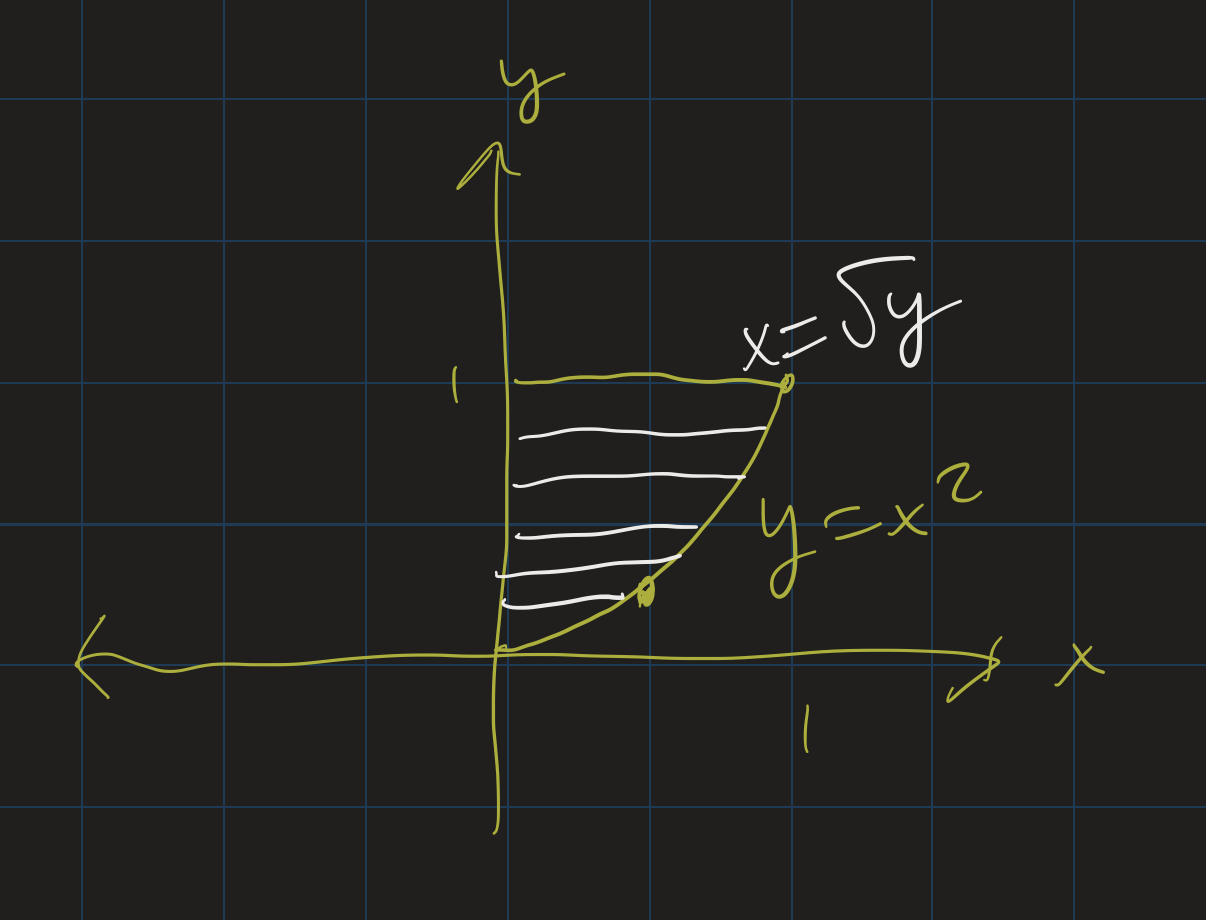 y
x = √y
1
y = x²
x
1